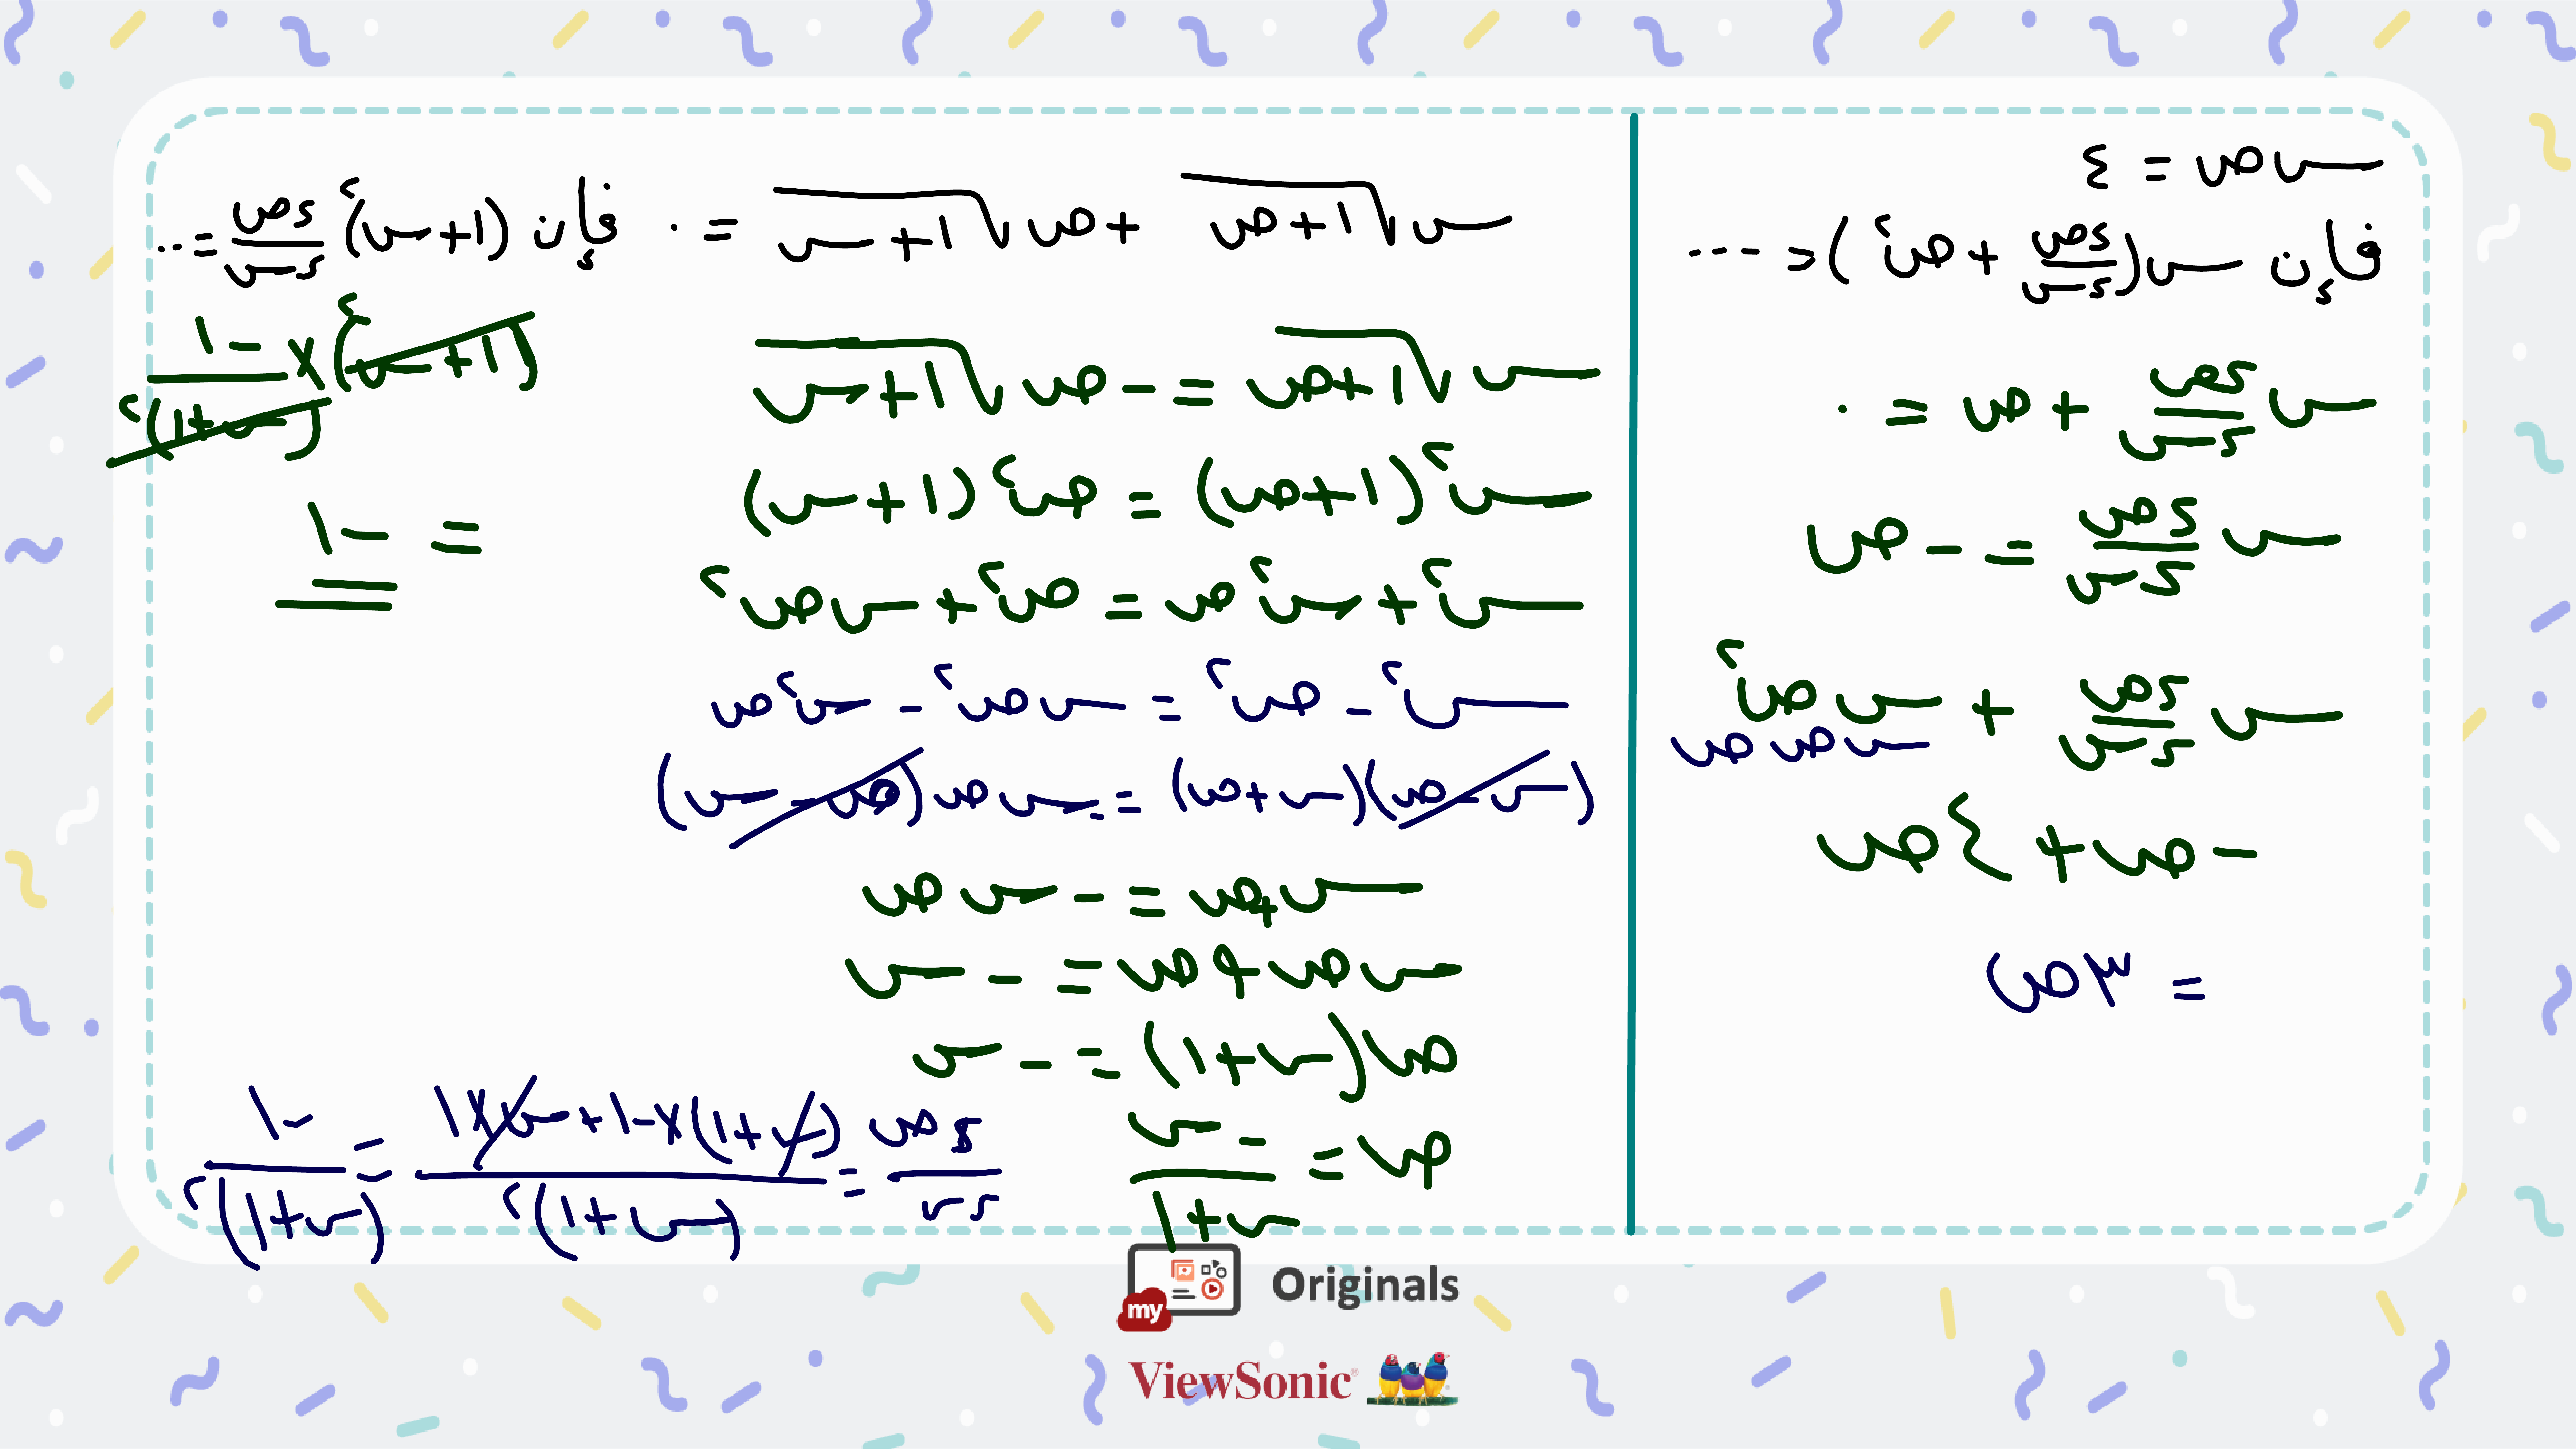 س ص = ٤
فإن س(دص/دس + ص٢) = ...
س دص/دس + ص = ٠
س دص/دس = - ص
س دص/دس + س ص٢
س ص ص
- ص + ٤ ص
= ٣ ص
س √(١+ص) + ص √(١+س) = ٠ فإن (١+س)٢ دص/دس = ..
س √(١+ص) = - ص √(١+س)
س٢ (١+ص) = ص٢ (١+س)
س٢ + س٢ ص = ص٢ + س ص٢
س٢ - ص٢ = س ص٢ - س٢ ص
(س - ص)(س + ص) = - س ص (ص - س)
س + ص = - س ص
س ص + ص = - س
ص (س + ١) = - س
ص = - س / س + ١
دص/دس = (س + ١) × -١ + س × ١ / (س + ١)٢ = -١ / (س + ١)٢
(١+س)٢ × -١ / (س + ١)٢
= -١
my Originals
ViewSonic